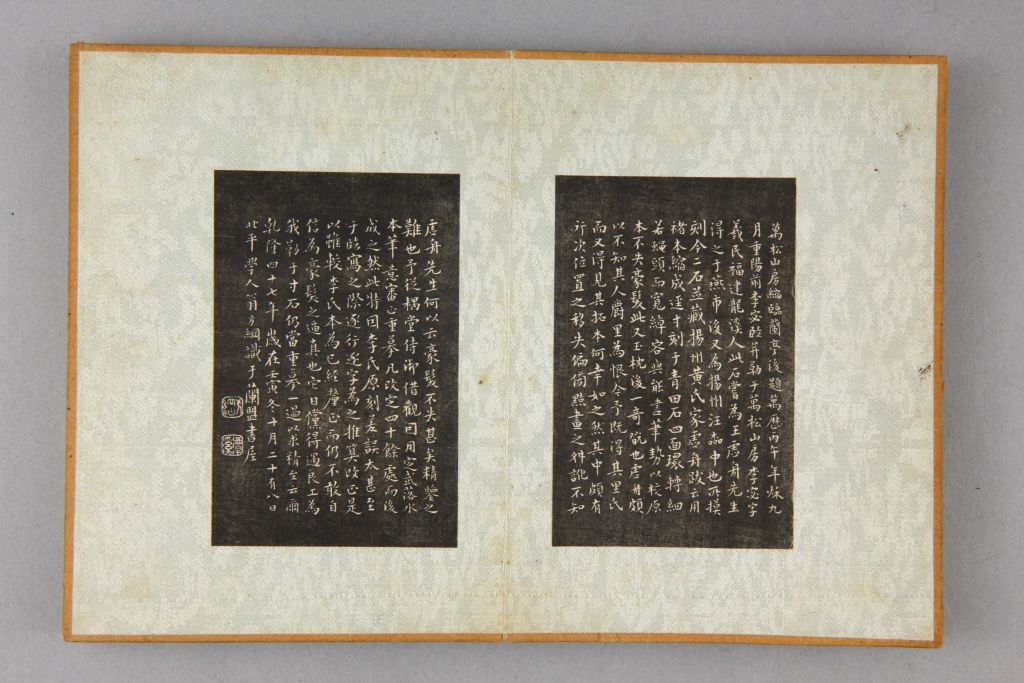 萬松山房縮臨蘭亭後題萬歷丙午年秋九
月重陽前李宓臨并勒于萬松山房李宓字
羲民福建龍溪人此石嘗為王虛舟先生
得之于燕市後又為揚州汪 中也所摸
刻今二石並藏揚州黃氏家虛舟跋云用
褚本縮成逕寸刻于青田石四面環轉細
若蠅頭而寬綽容與能盡筆勢以校原
本不失豪髮此又玉枕後一奇觀也虛舟頗
以不知其人爵里為恨今予既得其里氏
而又得見其拓本何幸如之然其中頗有
行次位置之移失偏傍點畫之舛訛不知
虛舟先生何以云豪髮不失甚矣精鑒之
難也予從耦堂侍御借觀因用定武落水
本筆意審正重摹凡改定四十餘處而後
成之然此特因李氏原刻差誤太甚至
于臨寫之際逐行逐字為之推算改正是
以雖較李氏本為已經釐正而仍不敢自
信為豪髮之逼真也它日儻得遇良工為
我勒于寸石仍當重摹一過以求精至云爾
乾隆四十七年歲在壬寅冬十月二十有八日
北平學人翁方綱識于蘭盟書屋